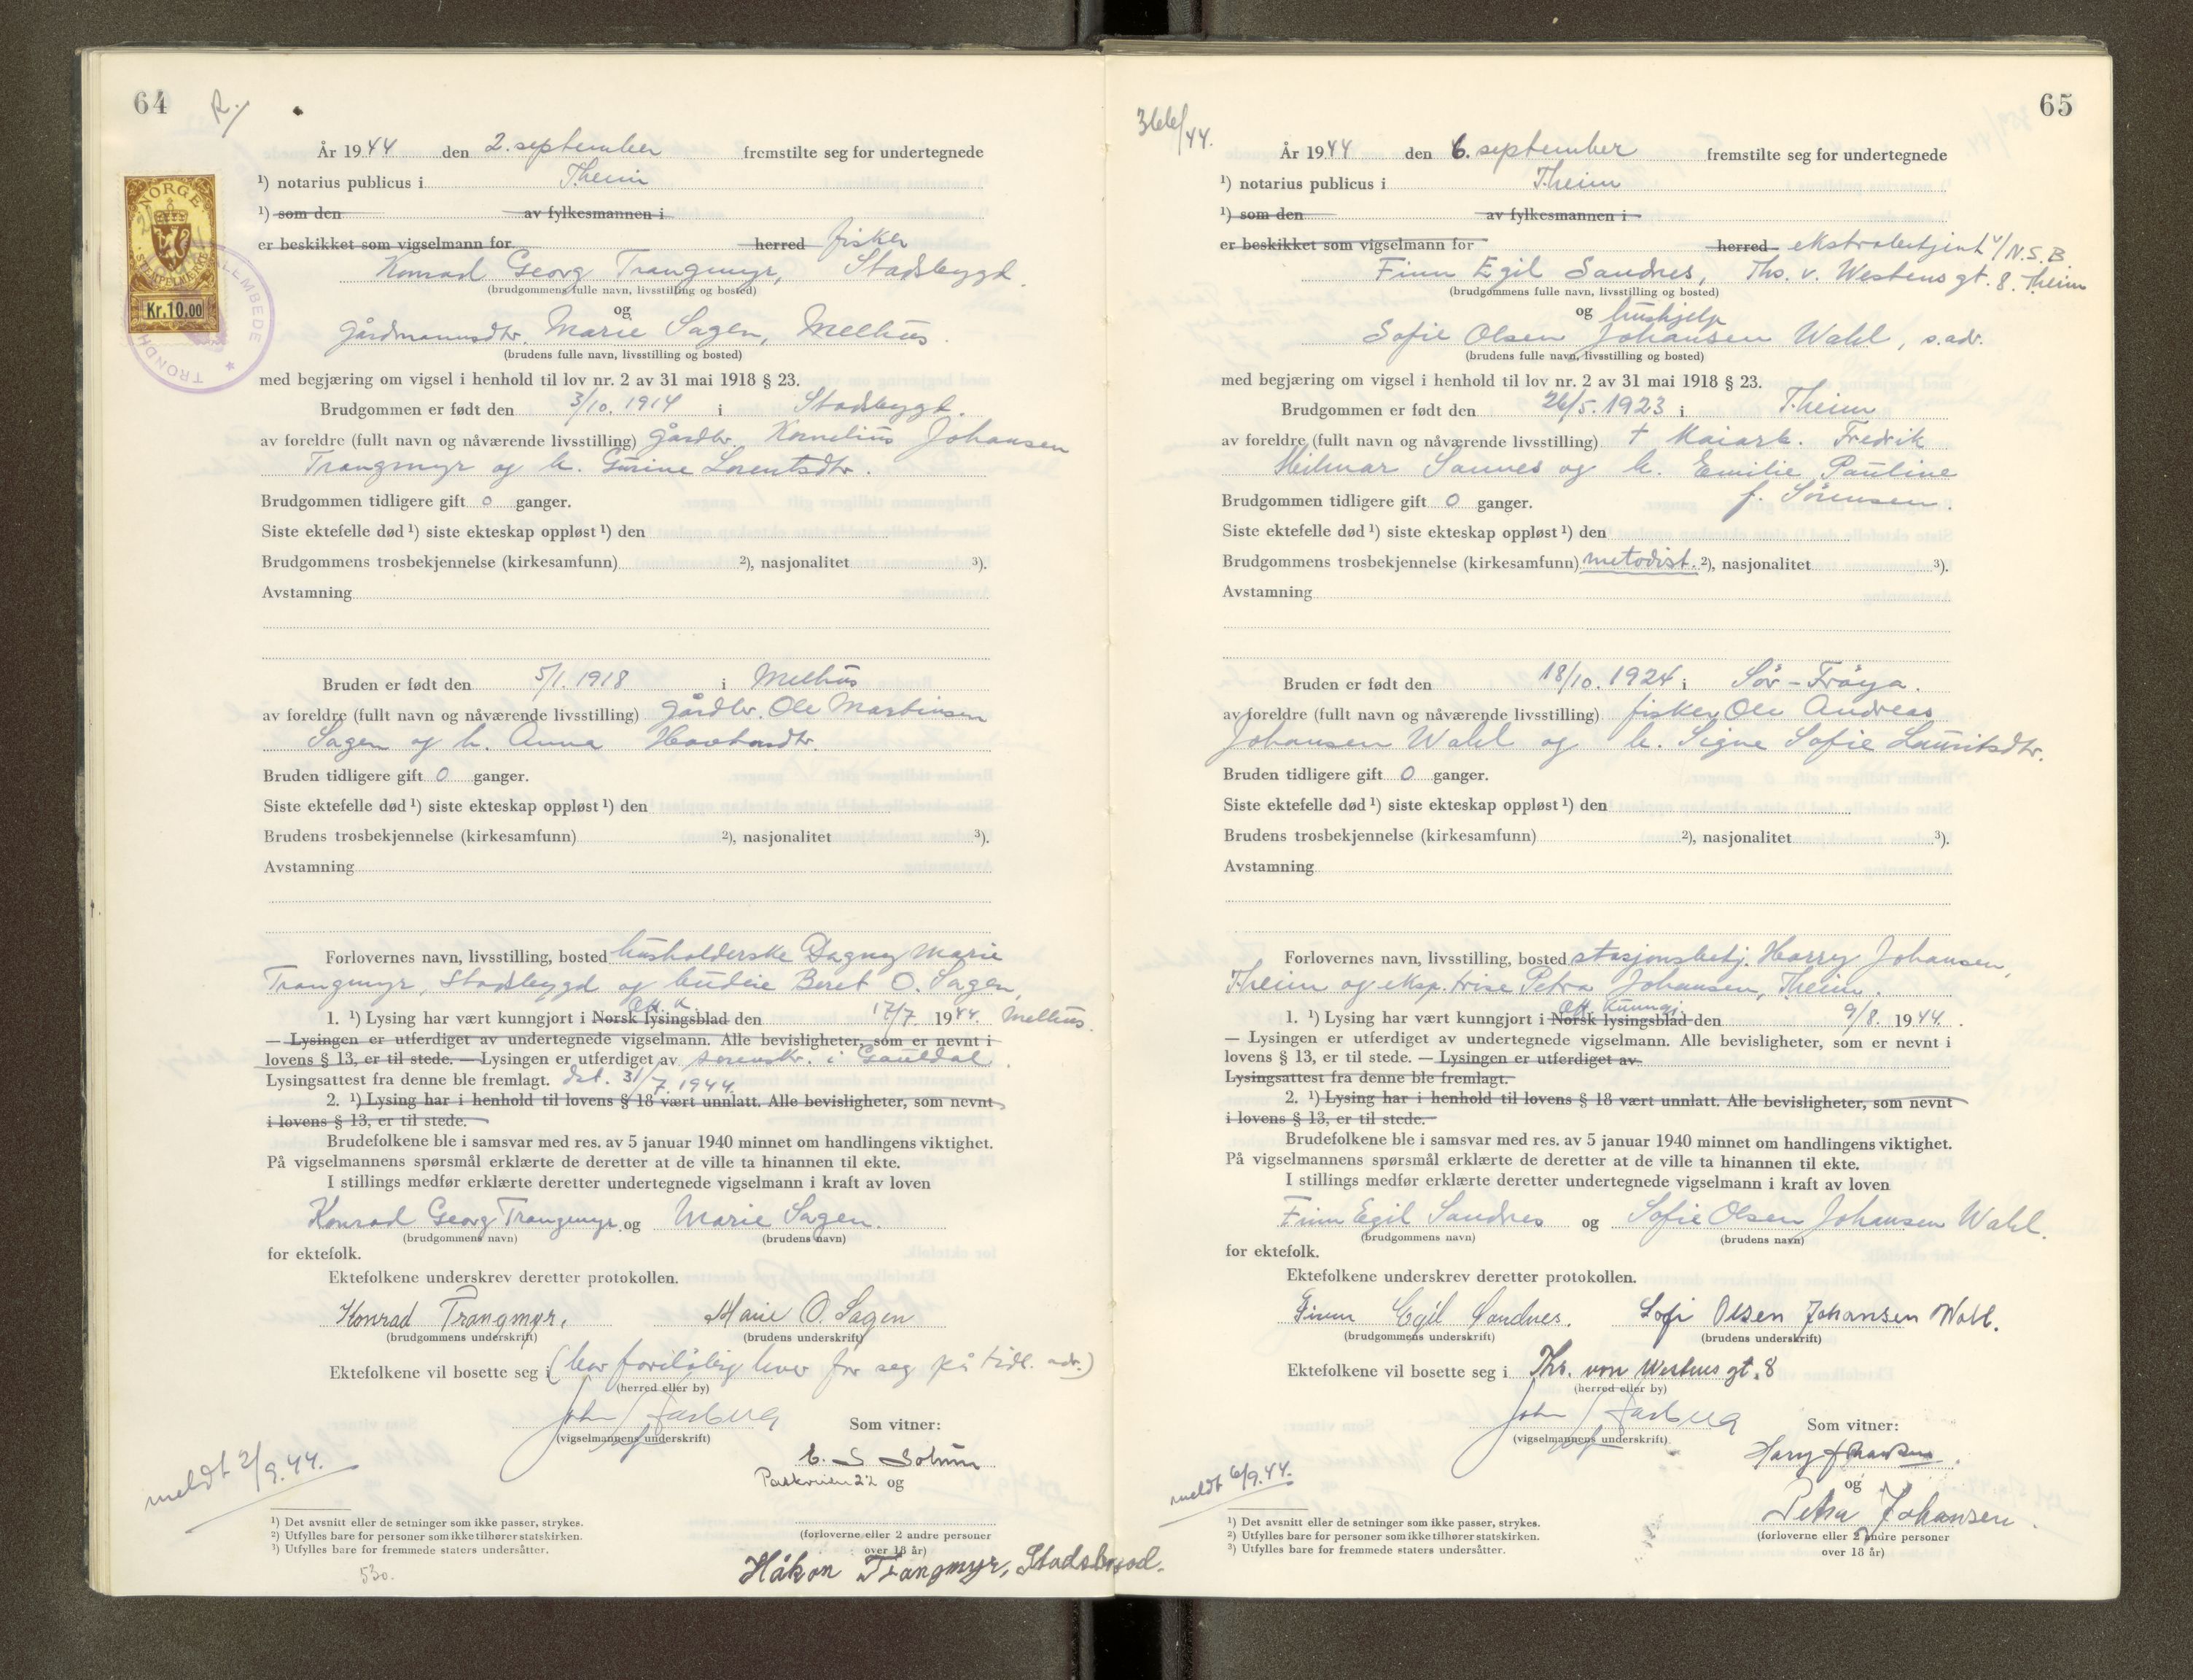 64
R./
År 1944 den 2. september fremstilte seg for undertegnede
¹) notarius publicus i T.heim
¹) som den av fylkesmannen i
er beskikket som vigselmann for herred fisker
Konrad Georg Trangmyr, Stadsbygd.
(brudgommens fulle navn, livsstilling og bosted)
og
gårdmannsdtr. Marie Sagen, Melhus.
(brudens fulle navn, livsstilling og bosted)
NORGE
STEMPELMERKE
Kr.10.00
med begjæring om vigsel i henhold til lov nr. 2 av 31 mai 1918 § 23.
Brudgommen er født den 3/10. 1914 i Stadsbygd.
av foreldre (fullt navn og nåværende livsstilling) gårdbr. Kornelius Johansen
Trangmyr og h. Gurine Lorentsdtr.
Brudgommen tidligere gift 0 ganger.
Siste ektefelle død ¹) siste ekteskap oppløst ¹) den
Brudgommens trosbekjennelse (kirkesamfunn) ²), nasjonalitet ³).
Avstamning
Bruden er født den 5/1. 1918 i Melhus
av foreldre (fullt navn og nåværende livsstilling) gårdbr. Ole Martinsen
Sagen og h. Anna
Bruden tidligere gift 0 ganger.
Siste ektefelle død ¹) siste ekteskap oppløst ¹) den
Brudens trosbekjennelse (kirkesamfunn) ²), nasjonalitet ³).
Avstamning
Forlovernes navn, livsstilling, bosted husholderske Dagny Marie
Trangmyr, Stadsbygd og budeie Beret O. Sagen,
Off. K.
1. ¹) Lysing har vært kunngjort i Norsk lysingsblad den 17/7. 1944. Melhus.
— Lysingen er utferdiget av undertegnede vigselmann. Alle bevisligheter, som er nevnt i
lovens § 13, er til stede. — Lysingen er utferdiget av sorenskr. i Gauldal.
Lysingsattest fra denne ble fremlagt. dat. 31/7. 1944.
2. ¹) Lysing har i henhold til lovens § 18 vært unnlatt. Alle bevisligheter, som nevnt
i lovens § 13, er til stede.
Brudefolkene ble i samsvar med res. av 5 januar 1940 minnet om handlingens viktighet.
På vigselmannens spørsmål erklærte de deretter at de ville ta hinannen til ekte.
I stillings medfør erklærte deretter undertegnede vigselmann i kraft av loven
Konrad Georg Trangmyr og Marie Sagen.
(brudgommens navn) (brudens navn)
for ektefolk.
Ektefolkene underskrev deretter protokollen.
Konrad Trangmyr. Marie O. Sagen
(brudgommens underskrift) (brudens underskrift)
Ektefolkene vil bosette seg i (bor foreløbig hver for seg på tidl. adr.)
(herred eller by)
Som vitner:
(vigselmannens underskrift)
E. S. Solum
og
meldt 2/9.44.
¹) Det avsnitt eller de setninger som ikke passer, strykes.
²) Utfylles bare for personer som ikke tilhører statskirken.
³) Utfylles bare for fremmede staters undersåtter.
(forloverne eller 2 andre personer
over 18 år)
Håkon Trangmyr,
530.
65
366/44.
År 1944 den 6. september fremstilte seg for undertegnede
¹) notarius publicus i T.heim
¹) som den av fylkesmannen i
er beskikket som vigselmann for herred ekstrabetjent v/N.S.B
Finn Egil Sandnes, Ths. v. Westens gt. 8. T.heim
(brudgommens fulle navn, livsstilling og bosted)
og hushjelp
Sofie Olsen Johansen Wahl, s.adr.
(brudens fulle navn, livsstilling og bosted)
med begjæring om vigsel i henhold til lov nr. 2 av 31 mai 1918 § 23.
Brudgommen er født den 26/5. 1923 i T.heim
av foreldre (fullt navn og nåværende livsstilling) † Kaiarb. Fredrik
Hilmar Sannes og h. Emilie Pauline
f. Sörensen.
Brudgommen tidligere gift 0 ganger.
Siste ektefelle død ¹) siste ekteskap oppløst ¹) den
Brudgommens trosbekjennelse (kirkesamfunn) metodist. ²), nasjonalitet ³).
Avstamning
Bruden er født den 18/10. 1924 i Sör-Fröya.
av foreldre (fullt navn og nåværende livsstilling) fisker Ole Andreas
Johansen Wahl og h. Signe Sofie Lauritsdtr.
Bruden tidligere gift 0 ganger.
Siste ektefelle død ¹) siste ekteskap oppløst ¹) den
Brudens trosbekjennelse (kirkesamfunn) ²), nasjonalitet ³).
Avstamning
Forlovernes navn, livsstilling, bosted stasjonsbetj. Harry Johansen,
T.heim og eksp.trise Petra Johansen, T.heim.
Off. Kunngj.
1. ¹) Lysing har vært kunngjort i Norsk lysingsblad den 9/8. 1944.
— Lysingen er utferdiget av undertegnede vigselmann. Alle bevisligheter, som er nevnt i
lovens § 13, er til stede. — Lysingen er utferdiget av
Lysingsattest fra denne ble fremlagt.
2. ¹) Lysing har i henhold til lovens § 18 vært unnlatt. Alle bevisligheter, som nevnt
i lovens § 13, er til stede.
Brudefolkene ble i samsvar med res. av 5 januar 1940 minnet om handlingens viktighet.
På vigselmannens spørsmål erklærte de deretter at de ville ta hinannen til ekte.
I stillings medfør erklærte deretter undertegnede vigselmann i kraft av loven
Finn Egil Sandnes og Sofie Olsen Johansen Wahl.
(brudgommens navn) (brudens navn)
for ektefolk.
Ektefolkene underskrev deretter protokollen.
Finn Egil Sandnes. Sofi Olsen Johansen Wahl.
(brudgommens underskrift) (brudens underskrift)
Ektefolkene vil bosette seg i Ths. von Westens gt. 8
(herred eller by)
Som vitner:
(vigselmannens underskrift)
Harry Johansen.
og
Petra Johansen.
meldt 6/9.44.
¹) Det avsnitt eller de setninger som ikke passer, strykes.
²) Utfylles bare for personer som ikke tilhører statskirken.
³) Utfylles bare for fremmede staters undersåtter.
(forloverne eller 2 andre personer
over 18 år)